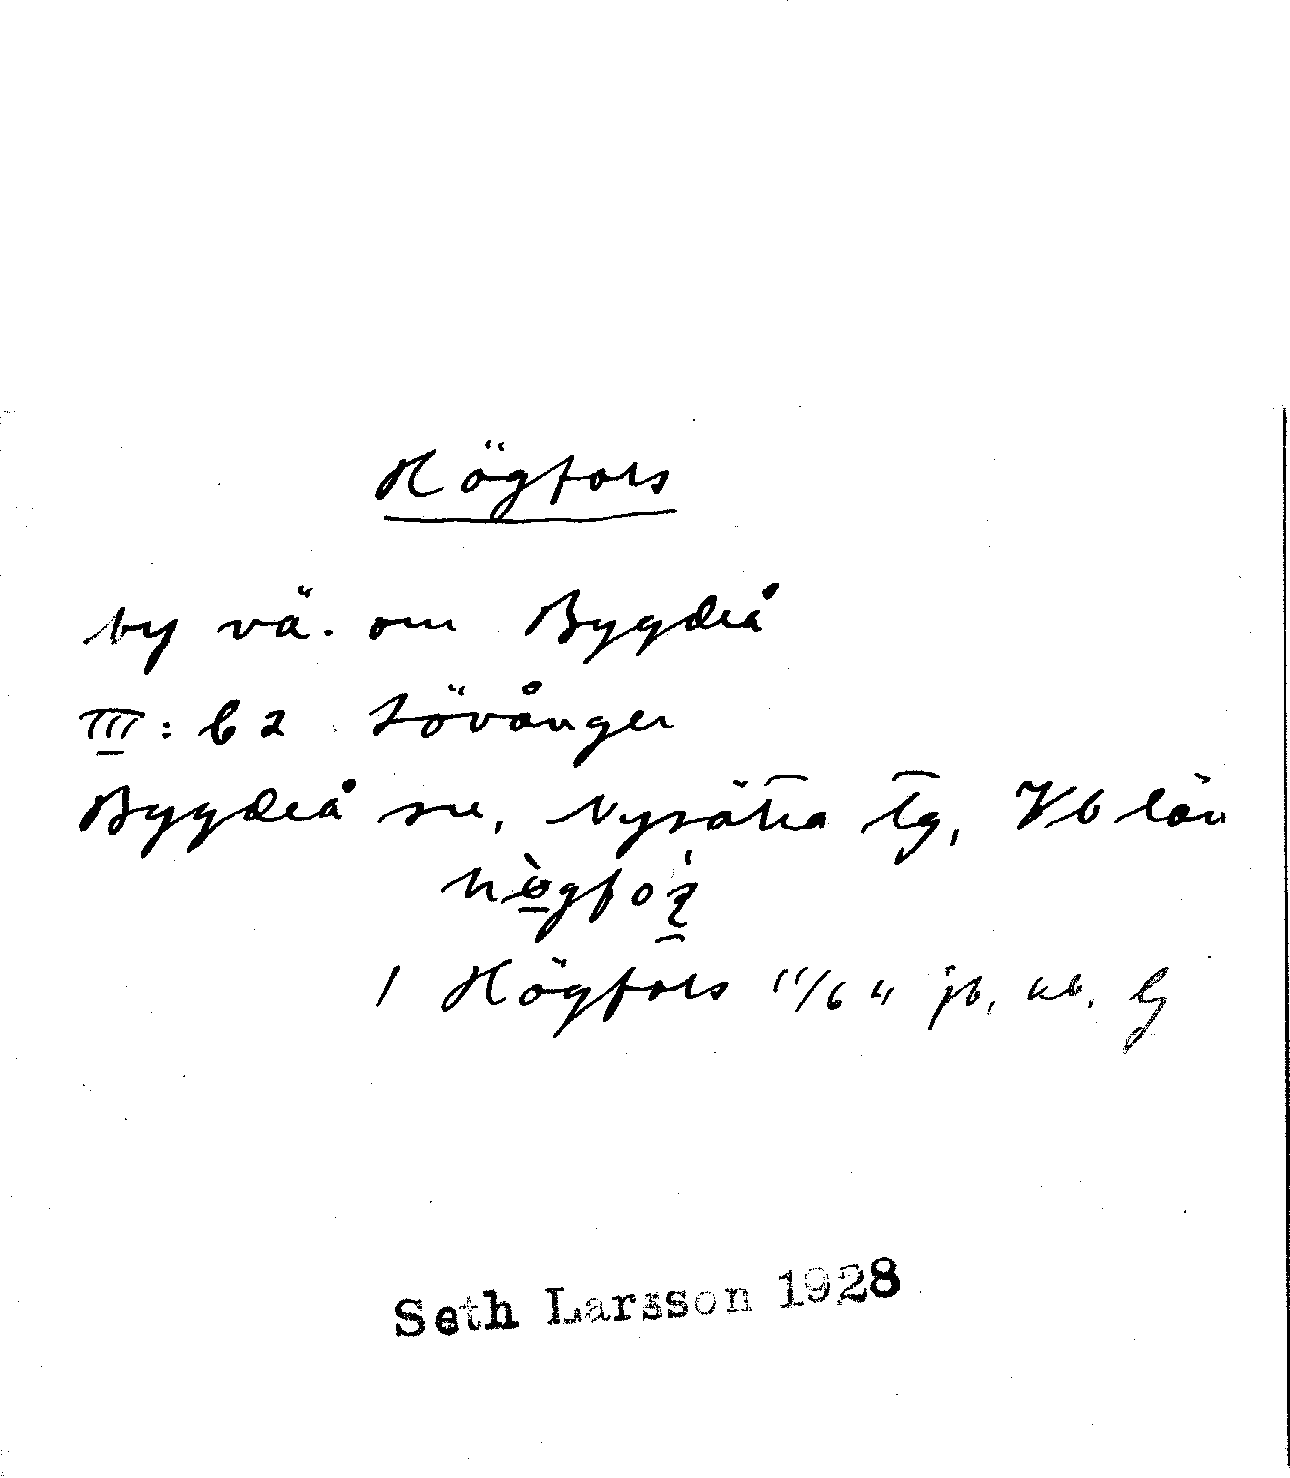 Högfors
by vä. om Bygdeå
III: b 2 Lövånger
Bygdeå sn, Nysätra tg, Vb län
1 Högfors 11/6 " jb,
Seth Larsson 1928